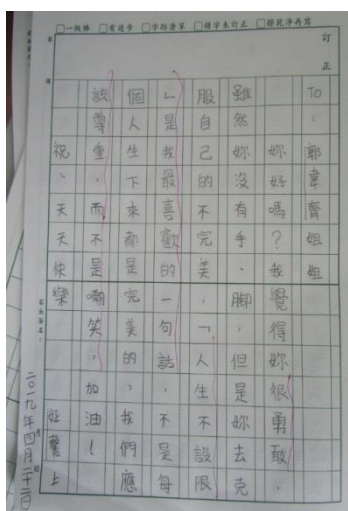 □一級棒 □有進步 □字跡潦草 □錯字未訂正 □擦乾淨再寫
訂正
TO：郭韋齊姐姐
妳好嗎？我覺得妳很勇敢，
雖然妳沒有手、腳，但是妳去克
服自己的不完美，「人生不設限
」是我最喜歡的一句話，不是每
個人生下來都是完美的，我們應
該尊重，而不是嘲笑，加油！
祝、天天快樂
上
二〇一九年四月二十二日
家長簽名：